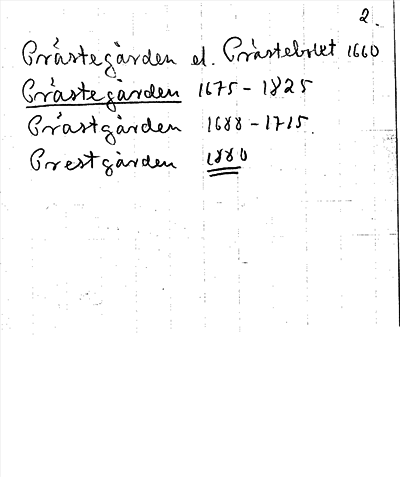 2.
Prästegården el. Prästebolet 1660
Prästegården 1675-1825
Prästgården 1688-1715.
Prestgården 1880